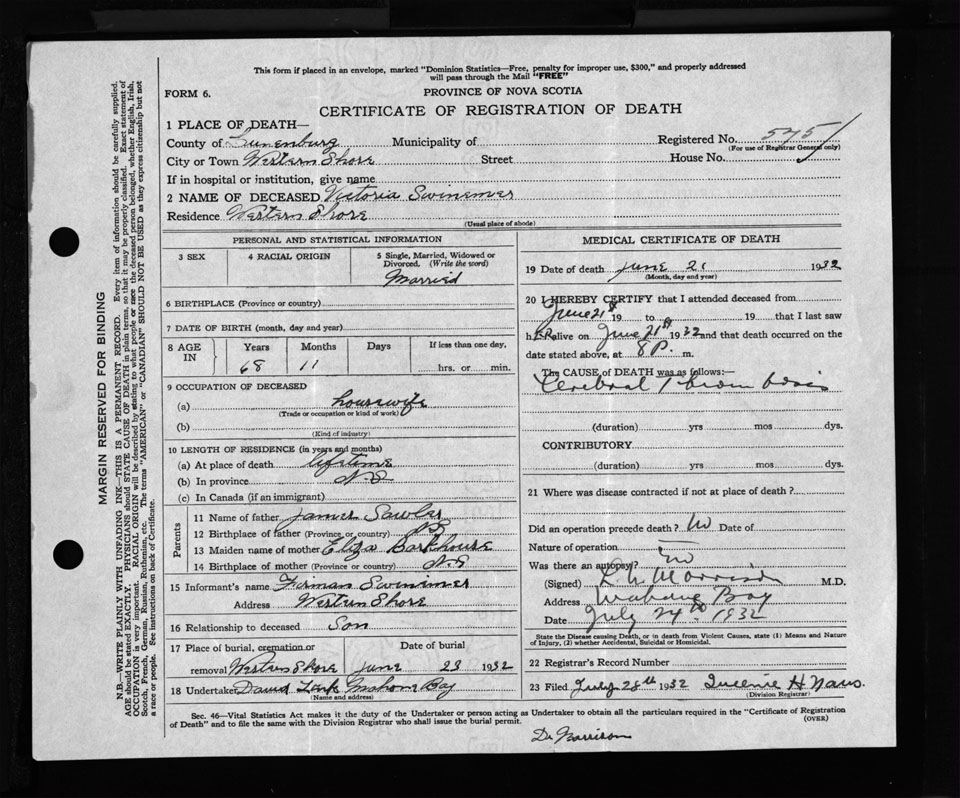 This form if placed in an envelope, marked "Dominion Statistics—Free, penalty for improper use, $300," and properly addressed
will pass through the Mail "FREE"
FORM 6.
PROVINCE OF NOVA SCOTIA
CERTIFICATE OF REGISTRATION OF DEATH
1 PLACE OF DEATH—
County of Lunenburg Municipality of Registered No. 5751
(For use of Registrar General only)
City or Town Western Shore Street House No.
If in hospital or institution, give name
2 NAME OF DECEASED Victoria Swinemer
Residence Western Shore
(Usual place of abode)
PERSONAL AND STATISTICAL INFORMATION
3 SEX 4 RACIAL ORIGIN 5 Single, Married, Widowed or
Divorced. (Write the word)
Married
6 BIRTHPLACE (Province or country)
7 DATE OF BIRTH (month, day and year)
8 AGE IN Years Months Days If less than one day,
68 11 hrs. or min.
9 OCCUPATION OF DECEASED
(a) housewife
(Trade or occupation or kind of work)
(b)
(Kind of industry)
10 LENGTH OF RESIDENCE (in years and months)
(a) At place of death lifetime
(b) In province N.S
(c) In Canada (if an immigrant)
Parents
11 Name of father James Sawler
12 Birthplace of father (Province or country) NS
13 Maiden name of mother Eliza Barkhouse
14 Birthplace of mother (Province or country) N.S
15 Informant's name Forman Swinimer
Address Western Shore
16 Relationship to deceased Son
17 Place of burial, cremation or Date of burial
removal Western Shore June 23 1932
18 Undertaker David Mahone Bay
(Name and address)
MEDICAL CERTIFICATE OF DEATH
19 Date of death June 21 1932
(Month, day and year)
20 I HEREBY CERTIFY that I attended deceased from
June 21st 19 to 19 that I last saw
her alive on June 21st 1932 and that death occurred on the
date stated above, at 8 P. m.
The CAUSE of DEATH was as follows:—
Cerebral Thrombosis
(duration) yrs mos dys.
CONTRIBUTORY
(duration) yrs mos dys.
21 Where was disease contracted if not at place of death?
Did an operation precede death? No Date of
Nature of operation —
Was there an autopsy? no
(Signed) Morrison M.D.
Address Mahone Bay
Date July 24th 1932
State the Disease causing Death, or in death from Violent Causes, state (1) Means and Nature
of Injury, (2) whether Accidental, Suicidal or Homicidal.
22 Registrar's Record Number
23 Filed July 28th 1932 Queenie H
(Division Registrar)
Sec. 46—Vital Statistics Act makes it the duty of the Undertaker or person acting as Undertaker to obtain all the particulars required in the "Certificate of Registration
of Death" and to file the same with the Division Registrar who shall issue the burial permit.
(OVER)
Dr Morrison
MARGIN RESERVED FOR BINDING
N.B.—WRITE PLAINLY WITH UNFADING INK—THIS IS A PERMANENT RECORD. Every item of information should be carefully supplied.
AGE should be stated EXACTLY. PHYSICIANS should STATE CAUSE OF DEATH in plain terms, so that it may be properly classified. Exact statement of
OCCUPATION is very important. RACIAL ORIGIN will be described by stating to what people or race the deceased person belonged, whether English, Irish,
Scotch, French, German, Russian, Ruthenian, etc. The terms "AMERICAN" or "CANADIAN" SHOULD NOT BE USED as they express citizenship but not
a race or people. See instructions on back of Certificate.